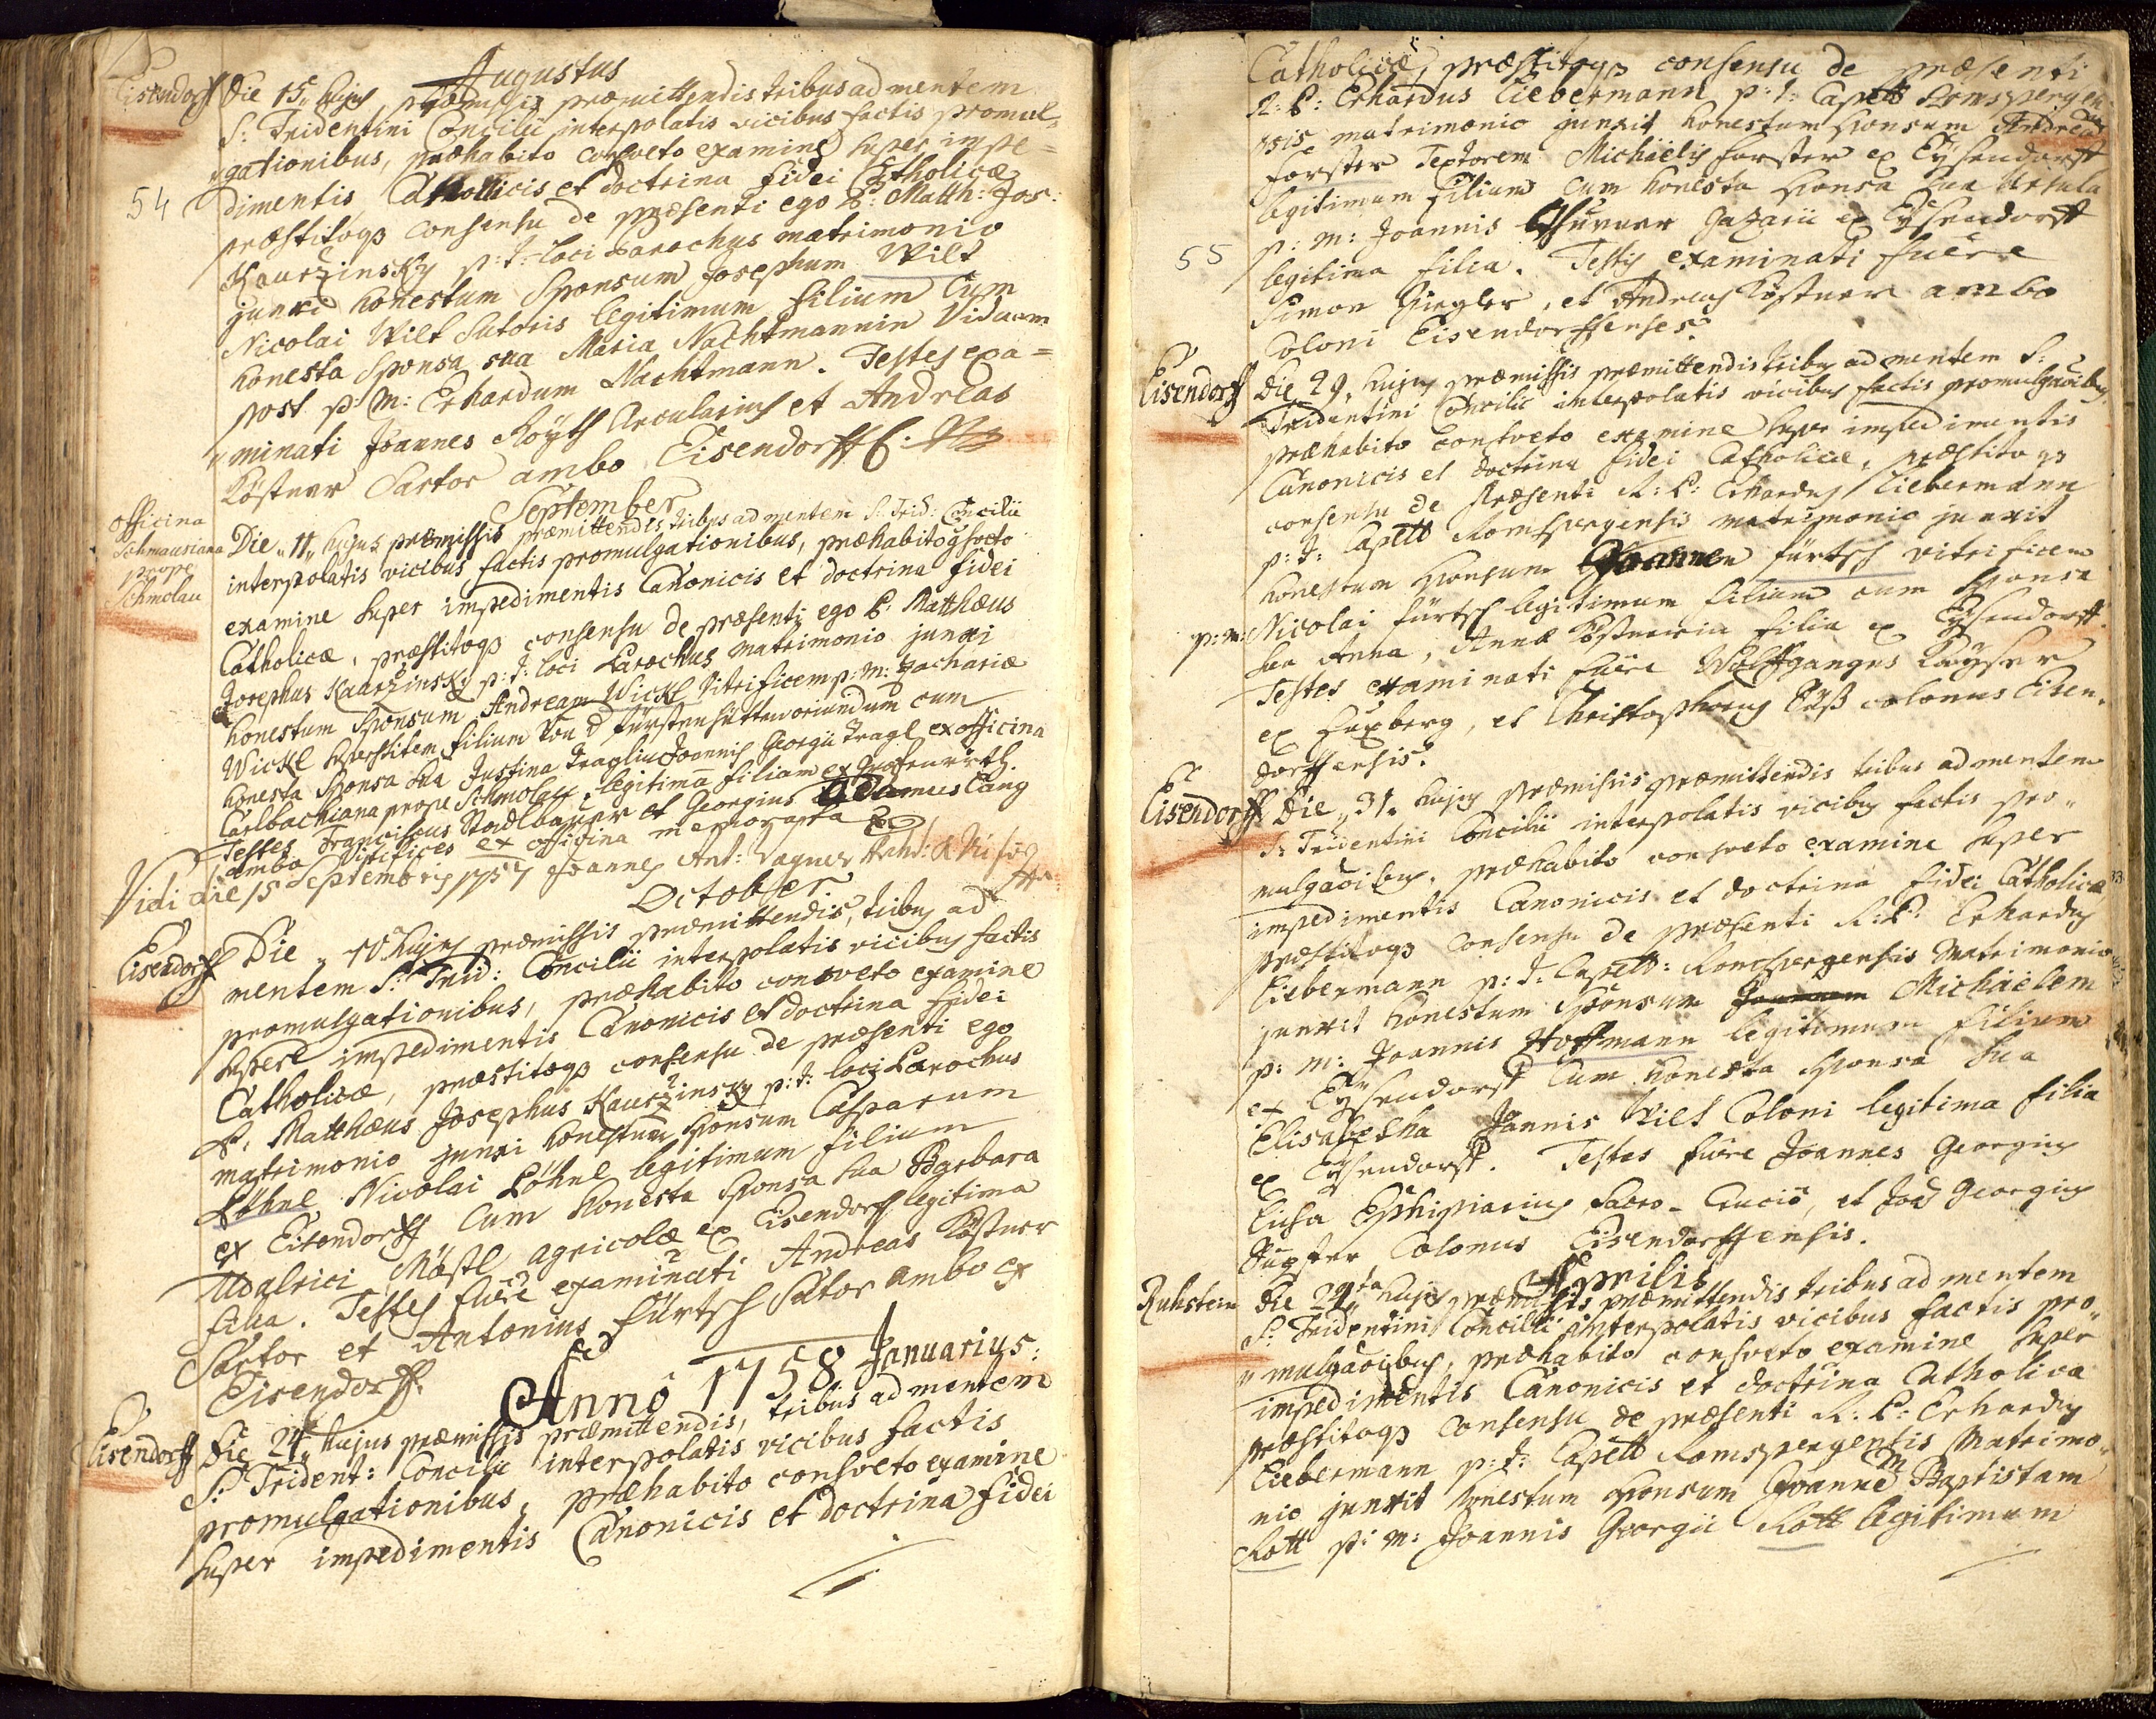 Augustus
Eisendorff Die 15 hujus præmissis præmittendis tribus ad mentem
S: Tridentini Concilii interpolatis vicibus factis promul=
gationibus, præhabito consveto examine super impe=
54
dimentis Canonicis et doctrina fidei Catholicæ
præstitoqs consensu de præsenti ego P: Matth: Jos:
Kaurzinsky p: t: loci Parochus matrimonio
junxi honestum Sponsum Josephum Wilt
Nicolai Wilt Sutoris legitimum filium Cum
honesta Sponsa sua Maria Nachtmannin Viduam
post p: m: Erhardum Nachtmann. Testes exa=
minati Joannes Röyth Arcularius et Andreas
Köstner Sartor ambo Eisendorff
September
officina
Schmausiana
prope
Schmolau
Die 11 hujus præmissis præmittendis tribus ad mentem S: Trid: Concilii
interpolatis vicibus factis promulgationibus, præhabito
examine super impedimentis Canonicis et doctrina fidei
Catholicæ, præstitoqs consensu de præsenti ego P: Matthæus
Josephus Kaurzinsky p: t: loci Parochus matrimonio junxi
honestum Sponsum Andream Wickl Vitrificem p: m: Zachariæ
Wickl filium fürstenhütten oriundum cum
honesta Sponsa sua Justina Joannis Georgii Tragl ex officina
Carlbachiana prope Schmolau legitima filiam
Testes Franciscus Stadlbauer et Georgius Adamus Lang
ambo Vitrifices ex officina memorata
Vidi die 15 Septembris 1757 Joannes Ant: Wagner
October
Eisendorff Die 10 hujus præmissis præmittendis, tribus ad
mentem S: Trid: Concilii interpolatis vicibus factis
promulgationibus, præhabito consveto examine
super impedimentis Canonicis et doctrina fidei
Catholicæ, præstitoqs consensu de præsenti ego
P. Matthæus Josephus Kaurzinsky p: t: loci Parochus
matrimonio junxi honestum sponsum Casparum
Löhnl Nicolai Löhnl legitimum filium
ex Eisendorff Cum honesta Sponsa sua Barbara
Udalrici Mästl agricolæ ex Eisendorff legitima
filia. Testes fuêre examinati Andreas Köstner
Sartor et Antonius Fürtsch Sutor ambo ex
Eisendorff.
Annô 1758 Januarius:
Eisendorff Die 24 hujus præmissis præmittendis, tribus ad mentem
S: Trident: Concilii interpolatis vicibus factis
promulgationibus, præhabito consveto examine
super impedimentis Canonicis et doctrina fidei
Catholicæ, præstitoqs consensu de præsenti
R: P: Erhardus Liebermann p: t: Capell Romspergen
sis matrimonio junxit honestum sponsum Andream
Forster Textorem Michaëlis Forster ex Eysendorff
legitimum filium cum honesta sponsa sua Ursula
p: m: Joannis ex Eysendorff
55
legitima filia. Testes examinati fuêre
Simon Ziegler, et Andreas Köstner ambo
Coloni Eisendorffenses.
Eisendorff Die 29 hujus præmissis præmittendis tribus ad mentem S:
Tridentini Concilii interpolatis vicibus factis promulgaoibus,
præhabito consveto examine super impedimentis
Canonicis et doctrina fidei Catholicæ, præstitoqs
consensu de præsenti R: P: Erhardus Liebermann
p: t: Capell Romspergensis matrimonio junxit
honestum sponsum Joannem Fürtsch vitrificem
p: m: Nicolai Fürtsch legitimum filium cum sponsa
sua Anna, Annæ Köstnerin filia ex Eysendorff.
Testes examinati fuêre Wolffgangus Kayser
ex Fuxberg, et Christophorus colonus Eisen=
dorffensis.
Eisendorff Die 31 hujus præmissis præmittendis tribus ad mentem
S: Tridentini Concilii interpolatis vicibus factis pro=
mulgaoibus, præhabito consveto examine super
impedimentis Canonicis et doctrina fidei Catholicæ
præstitoqs consensu de præsenti R: P: Erhardus
Liebermann p: t: Capell: Romspergensis Matrimonio
junxit honestum Sponsum Joannem Michaëlem
p: m: Joannis Hoffmann legitimum filium
ex Eysendorff Cum honesta sponsa sua
Elisabetha Joannis Wilt Coloni legitima filia
ex Eysendorff. Testes fuêre Joannes Georgius
Ephipiarius Sacro-Crucis, et Joan Georgius
Colonus Eisendorffensis.
Aprilis
Ruhstein Die 24ta hujus præmissis præmittendis tribus ad mentem
S: Tridentini Concilii interpolatis vicibus factis pro=
mulgaoibus, præhabito consveto examine super
impedimentis Canonicis et doctrina Catholica
præstitoqs consensu de præsenti R: P: Erhardus
Liebermann p: t: Capell Romspergensis Matrimo=
nio junxit honestum sponsum Joannem Baptistam
Rott p: m: Joannis Georgii Rott legitimum